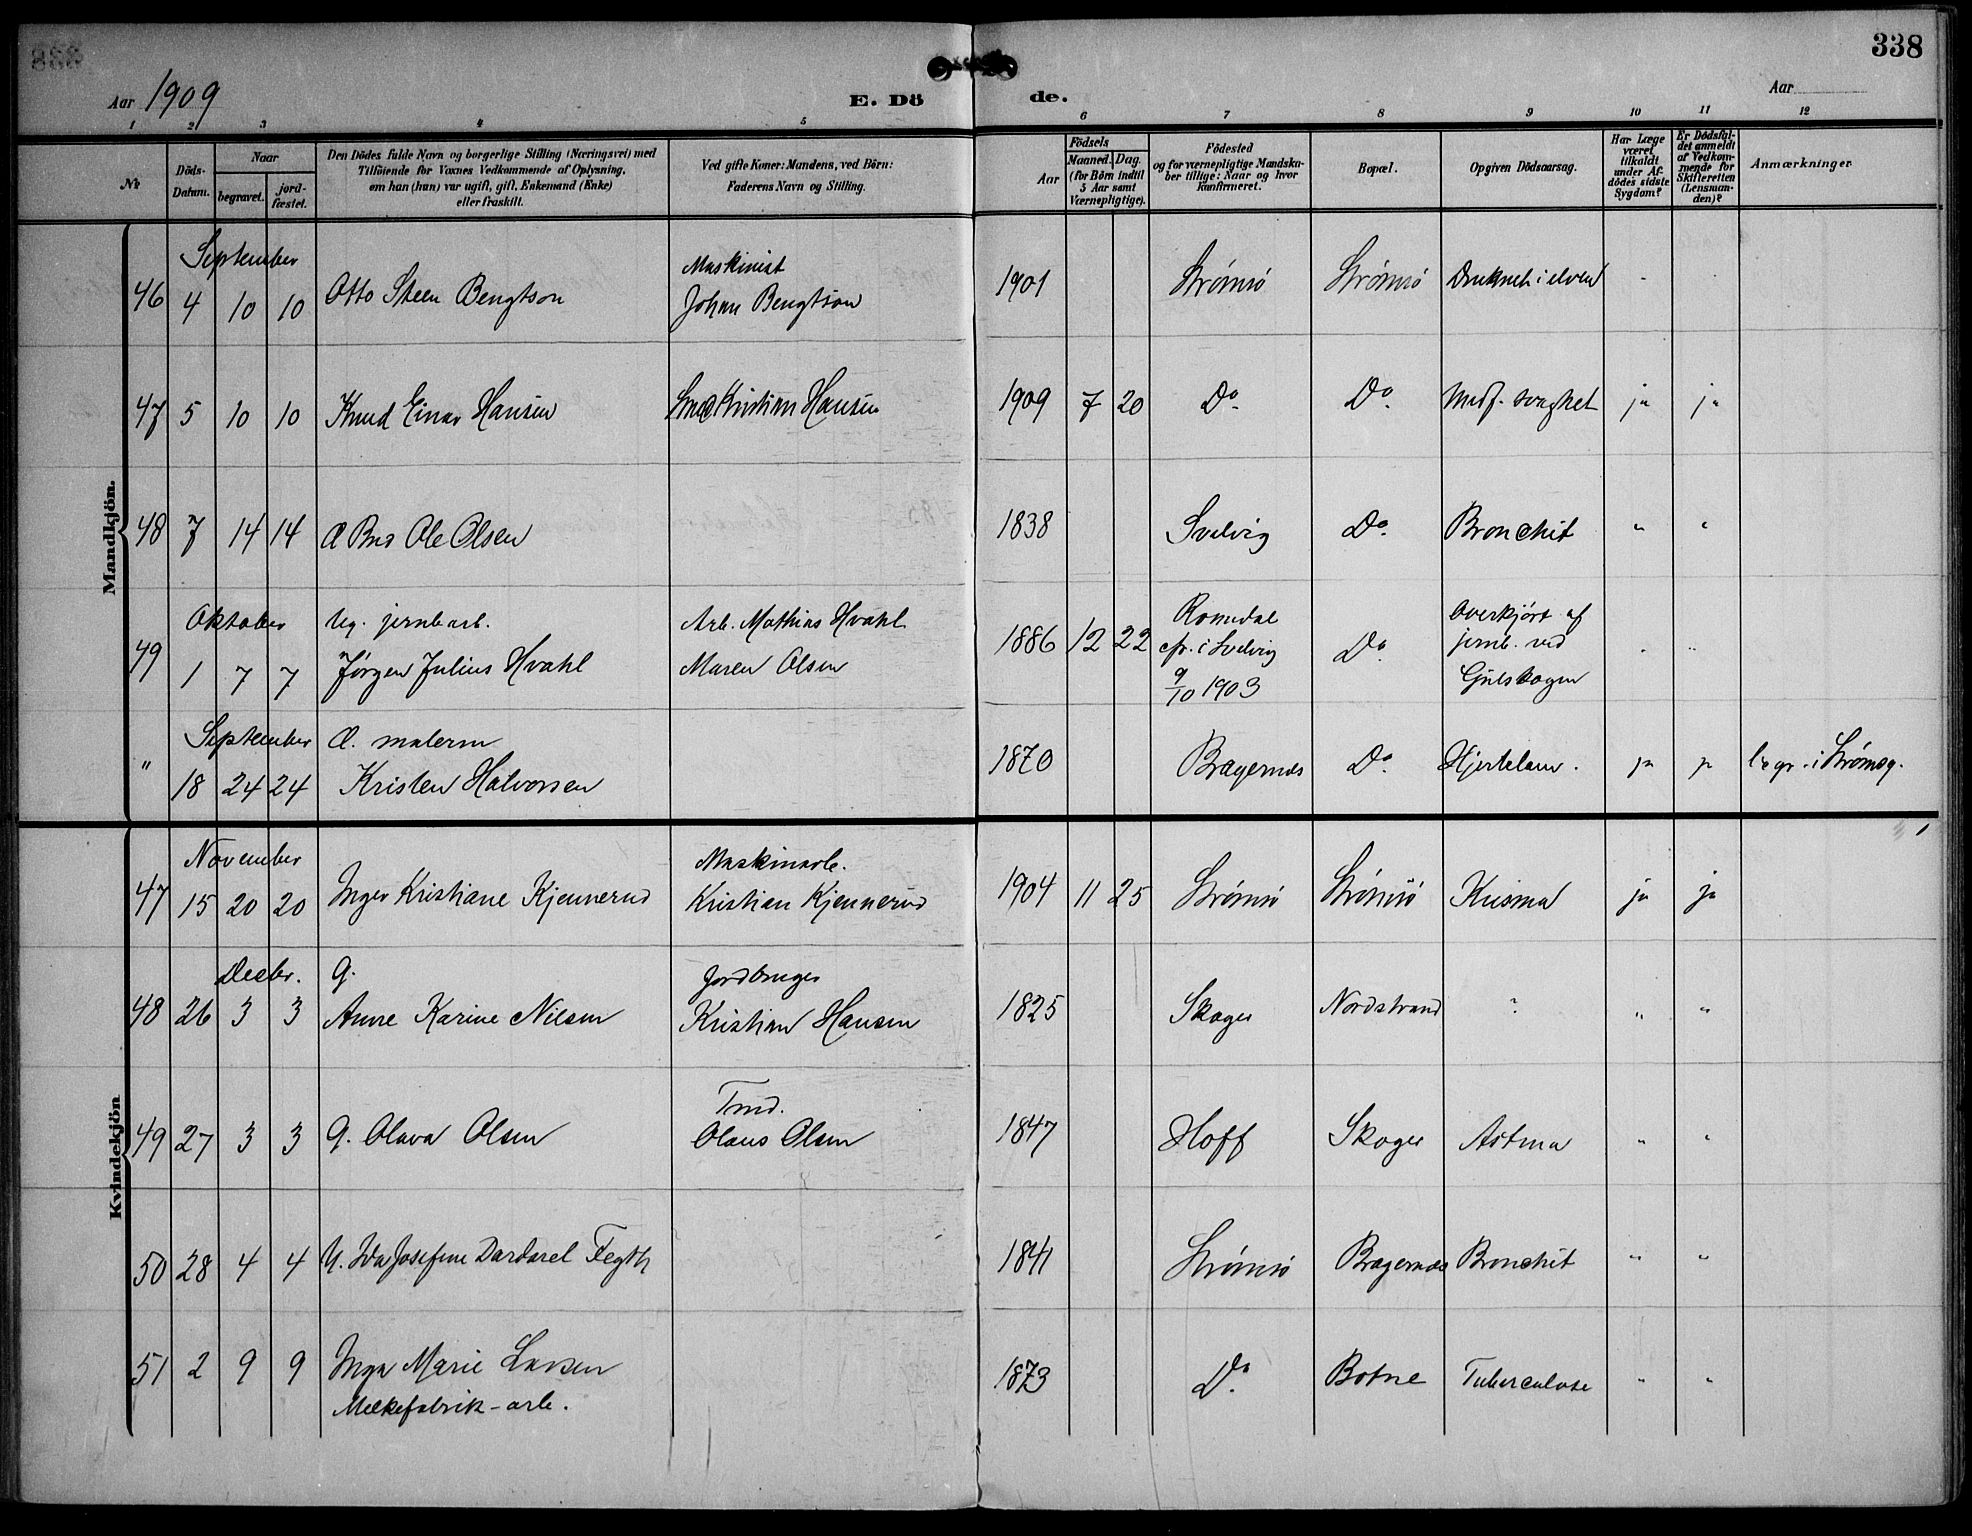 338
Aar 1909
E. Dö de.
Aar
1 2 3 4 5 6 7 8 9 10 11 12
№
Döds-Datum.
Naar
begravet.
jord-fæstet.
Den Dödes fulde Navn og borgerlige Stilling (Næringsvei) med
Tilföiende for Voxnes Vedkommende af Oplysning,
om han (hun) var ugift, gift, Enkemand (Enke)
eller fraskilt.
Ved gifte Koner: Mandens, ved Börn:
Faderens Navn og Stilling.
Födsels
Aar
Maaned. Dag.
(for Börn indtil
5 Aar samt
Værnepligtige).
Födested
og for værnepligtige Mandska-
ber tillige: Naar og hvor
konfirmeret.
Bopæl.
Opgiven Dödsaarsag.
Har Læge
været
tilkaldt
under Af-
dödes sidste
Sygdom?
Er Dödsfal-
det anmeldt
af Vedkom-
mende for
Skifteretten
(Lensman-
den)?
Anmærkninger
Mandkjön.
September
Maskinist
46 4 10 10 Otto Steen Bengtson Johan Bengtson 1901 Strømsö Strømsö Druknet i elven
47 5 10 10 Knud Einar Hansen Smed Kristian Hansen 1909 7 20 Do. Do. Medf. svaghet ja ja
48 7 14 14 Ole Olsen 1838 Svelvig Do. Bronchit " "
Oktober Ug. jernb arb. Arb. Mathias Hvahl Romedal Overkjørt af
49 1 7 7 Jørgen Julius Hvahl Maren Olsen 1886 12 22 cfr. i Svelvig Do. jernb. ved
9/10 1903 Gulskogen
September E. malerm
" 18 24 24 Kristen Halvorsen 1870 Bragernæs Do. Hjertelam. ja ja begr. i Strømsg.
Kvindekjön
November Maskinarb.
47 15 20 20 Inger Kristiane Kjennerud Kristian Kjennerud 1904 11 25 Strømsö Strømsö Krisma ja ja
Decbr. G. Jordbruger
48 26 3 3 Anne Karine Nilsen Kristian Hansen 1825 Skoger Nordstrand ? " "
Tmd.
49 27 3 3 G. Olava Olsen Olaus Olsen 1847 Hoff Skoger Astma " "
50 28 4 4 U. Ida Josefine Dardarel Fegth 1841 Strømsö Bragernæs Bronchit " "
51 2 9 9 Inga Marie Larsen 1873 Do. Botne Tuberculose " "
Melkefabrik-arb.